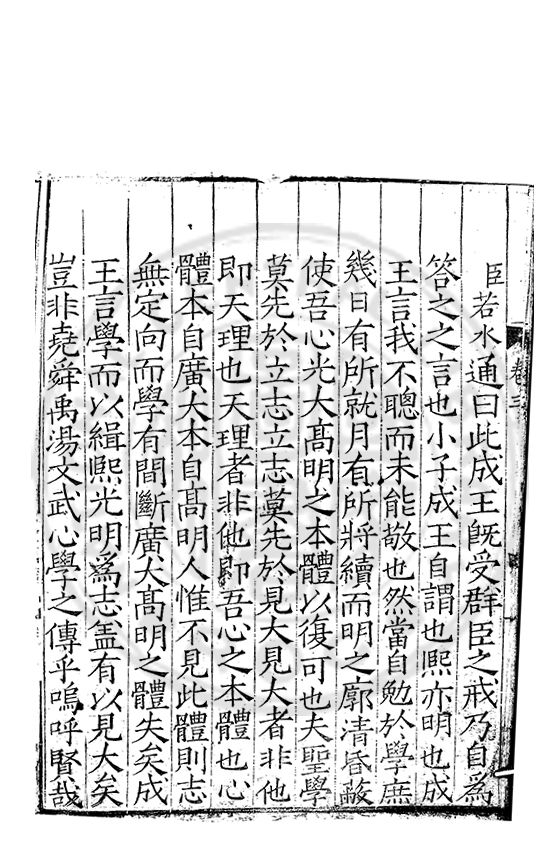 臣若水通曰此成王旣受群臣之戒乃自爲
答之之言也小子成王自謂也熙亦明也成
王言我不聰而未能敬也然當自勉於學庶
幾日有所就月有所將續而明之廓清昏蔽
使吾心光大髙明之本體以復可也夫聖學
莫先於立志立志莫先於見大見大者非他
即天理也天理者非他即吾心之本體也心
體本自廣大本自髙明人惟不見此體則志
無定向而學有間斷廣大髙明之體失矣成
王言學而以緝熙光明爲志盖有以見大矣
豈非堯舜禹湯文武心學之傳乎嗚呼賢哉
卷三